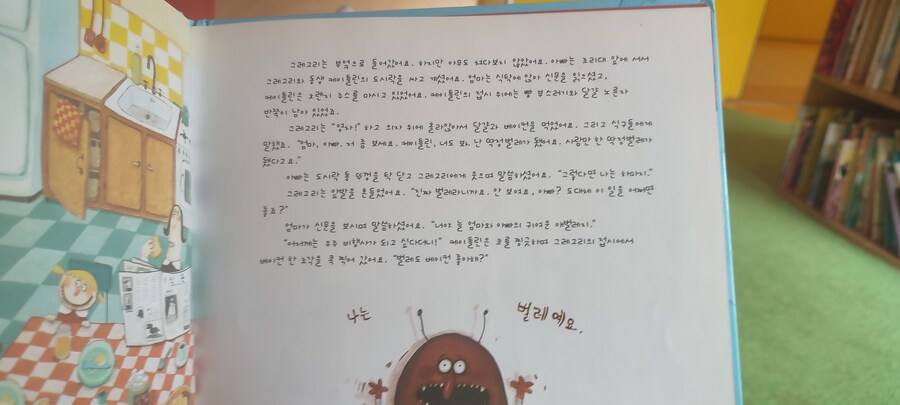 그레고리는 부엌으로 들어갔어요. 하지만 아무도 쳐다보지 않았어요. 아빠는 조리대 앞에 서서
그레고리와 동생 케이틀린의 도시락을 싸고 계셨어요. 엄마는 식탁에 앉아 신문을 읽으셨고,
케이틀린은 오렌지 주스를 마시고 있었어요. 케이틀린의 접시 위에는 빵 부스러기와 달걀 노른자
반쪽이 남아 있었죠.
그레고리는 "영차!" 하고 의자 위에 올라앉아서 달걀과 베이컨을 먹었어요. 그리고 식구들에게
말했죠. "엄마, 아빠. 저 좀 보세요. 케이틀린, 너도 봐. 난 딱정벌레가 됐어요. 사람만 한 딱정벌레가
됐다고요."
아빠는 도시락 통 뚜껑을 탁 닫고 그레고리에게 웃으며 말씀하셨어요. "그렇다면 나는 하마지."
그레고리는 앞발을 흔들었어요. "진짜 벌레라니까요. 안 보여요, 아빠? 도대체 이 일을 어쩌면
좋죠?"
엄마가 신문을 보시며 말씀하셨어요. "너야 늘 엄마와 아빠의 귀여운 애벌레지."
"어저께는 우주 비행사가 되고 싶다더니!" 케이틀린은 코를 찡긋하며 그레고리의 접시에서
베이컨 한 조각을 콕 찍어 갔어요. "벌레도 베이컨 좋아해?"
나는 벌레예요.